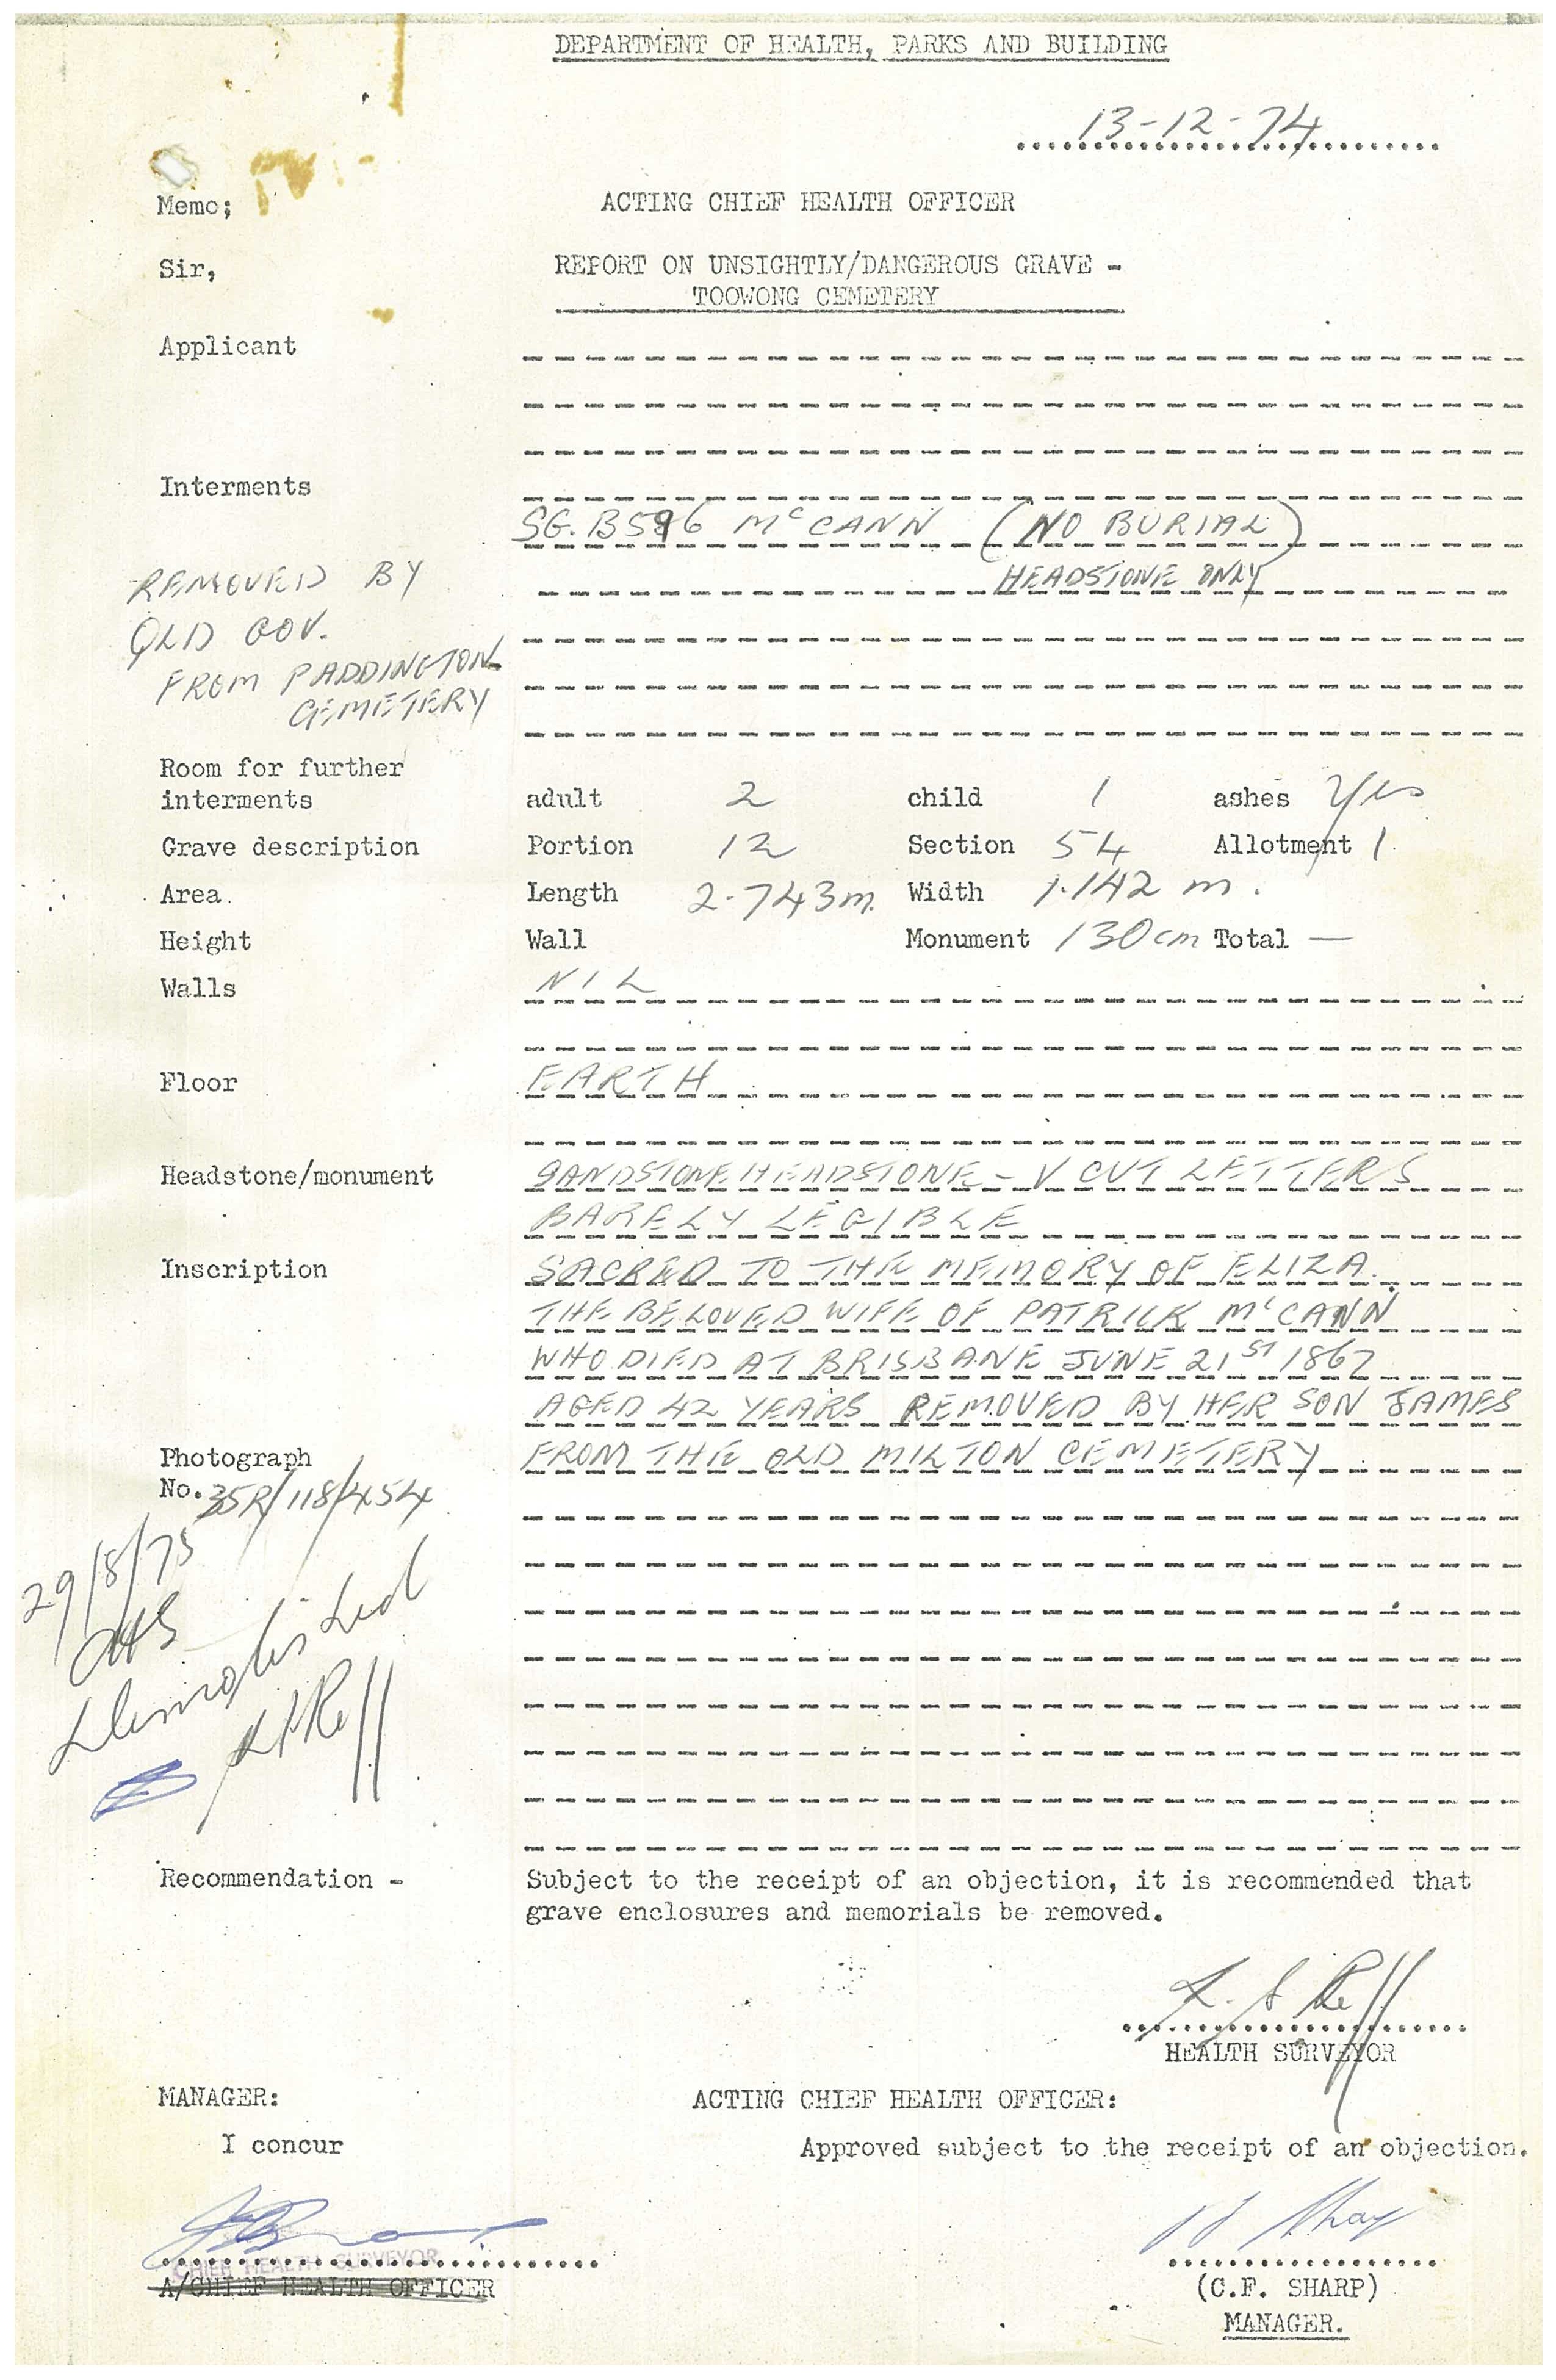 DEPARTMENT OF HEALTH, PARKS AND BUILDING
13-12-74
Memo; ACTING CHIEF HEALTH OFFICER
Sir, REPORT ON UNSIGHTLY/DANGEROUS GRAVE -
TOOWONG CEMETERY
Applicant
Interments
SG. B596 McCANN (NO BURIAL)
HEADSTONE ONLY
REMOVED BY
QLD GOV.
FROM PADDINGTON
CEMETERY
Room for further
interments adult 2 child 1 ashes Yes
Grave description Portion 12 Section 54 Allotment 1
Area. Length 2.743m. Width 1.142 m.
Height Wall Monument 130cm Total —
Walls NIL
Floor EARTH
Headstone/monument SANDSTONE HEADSTONE - V CUT LETTERS
BARELY LEGIBLE
Inscription SACRED TO THE MEMORY OF ELIZA.
THE BELOVED WIFE OF PATRICK McCANN
WHO DIED AT BRISBANE JUNE 21ST 1867
AGED 42 YEARS REMOVED BY HER SON JAMES
Photograph FROM THE OLD MILTON CEMETERY
No. 35R/118/454
29/8/75
CHS
Demolished
Recommendation - Subject to the receipt of an objection, it is recommended that
grave enclosures and memorials be removed.
HEALTH SURVEYOR
MANAGER: ACTING CHIEF HEALTH OFFICER:
I concur Approved subject to the receipt of an objection.
CHIEF HEALTH SURVEYOR
A/CHIEF HEALTH OFFICER (C.F. SHARP)
MANAGER.